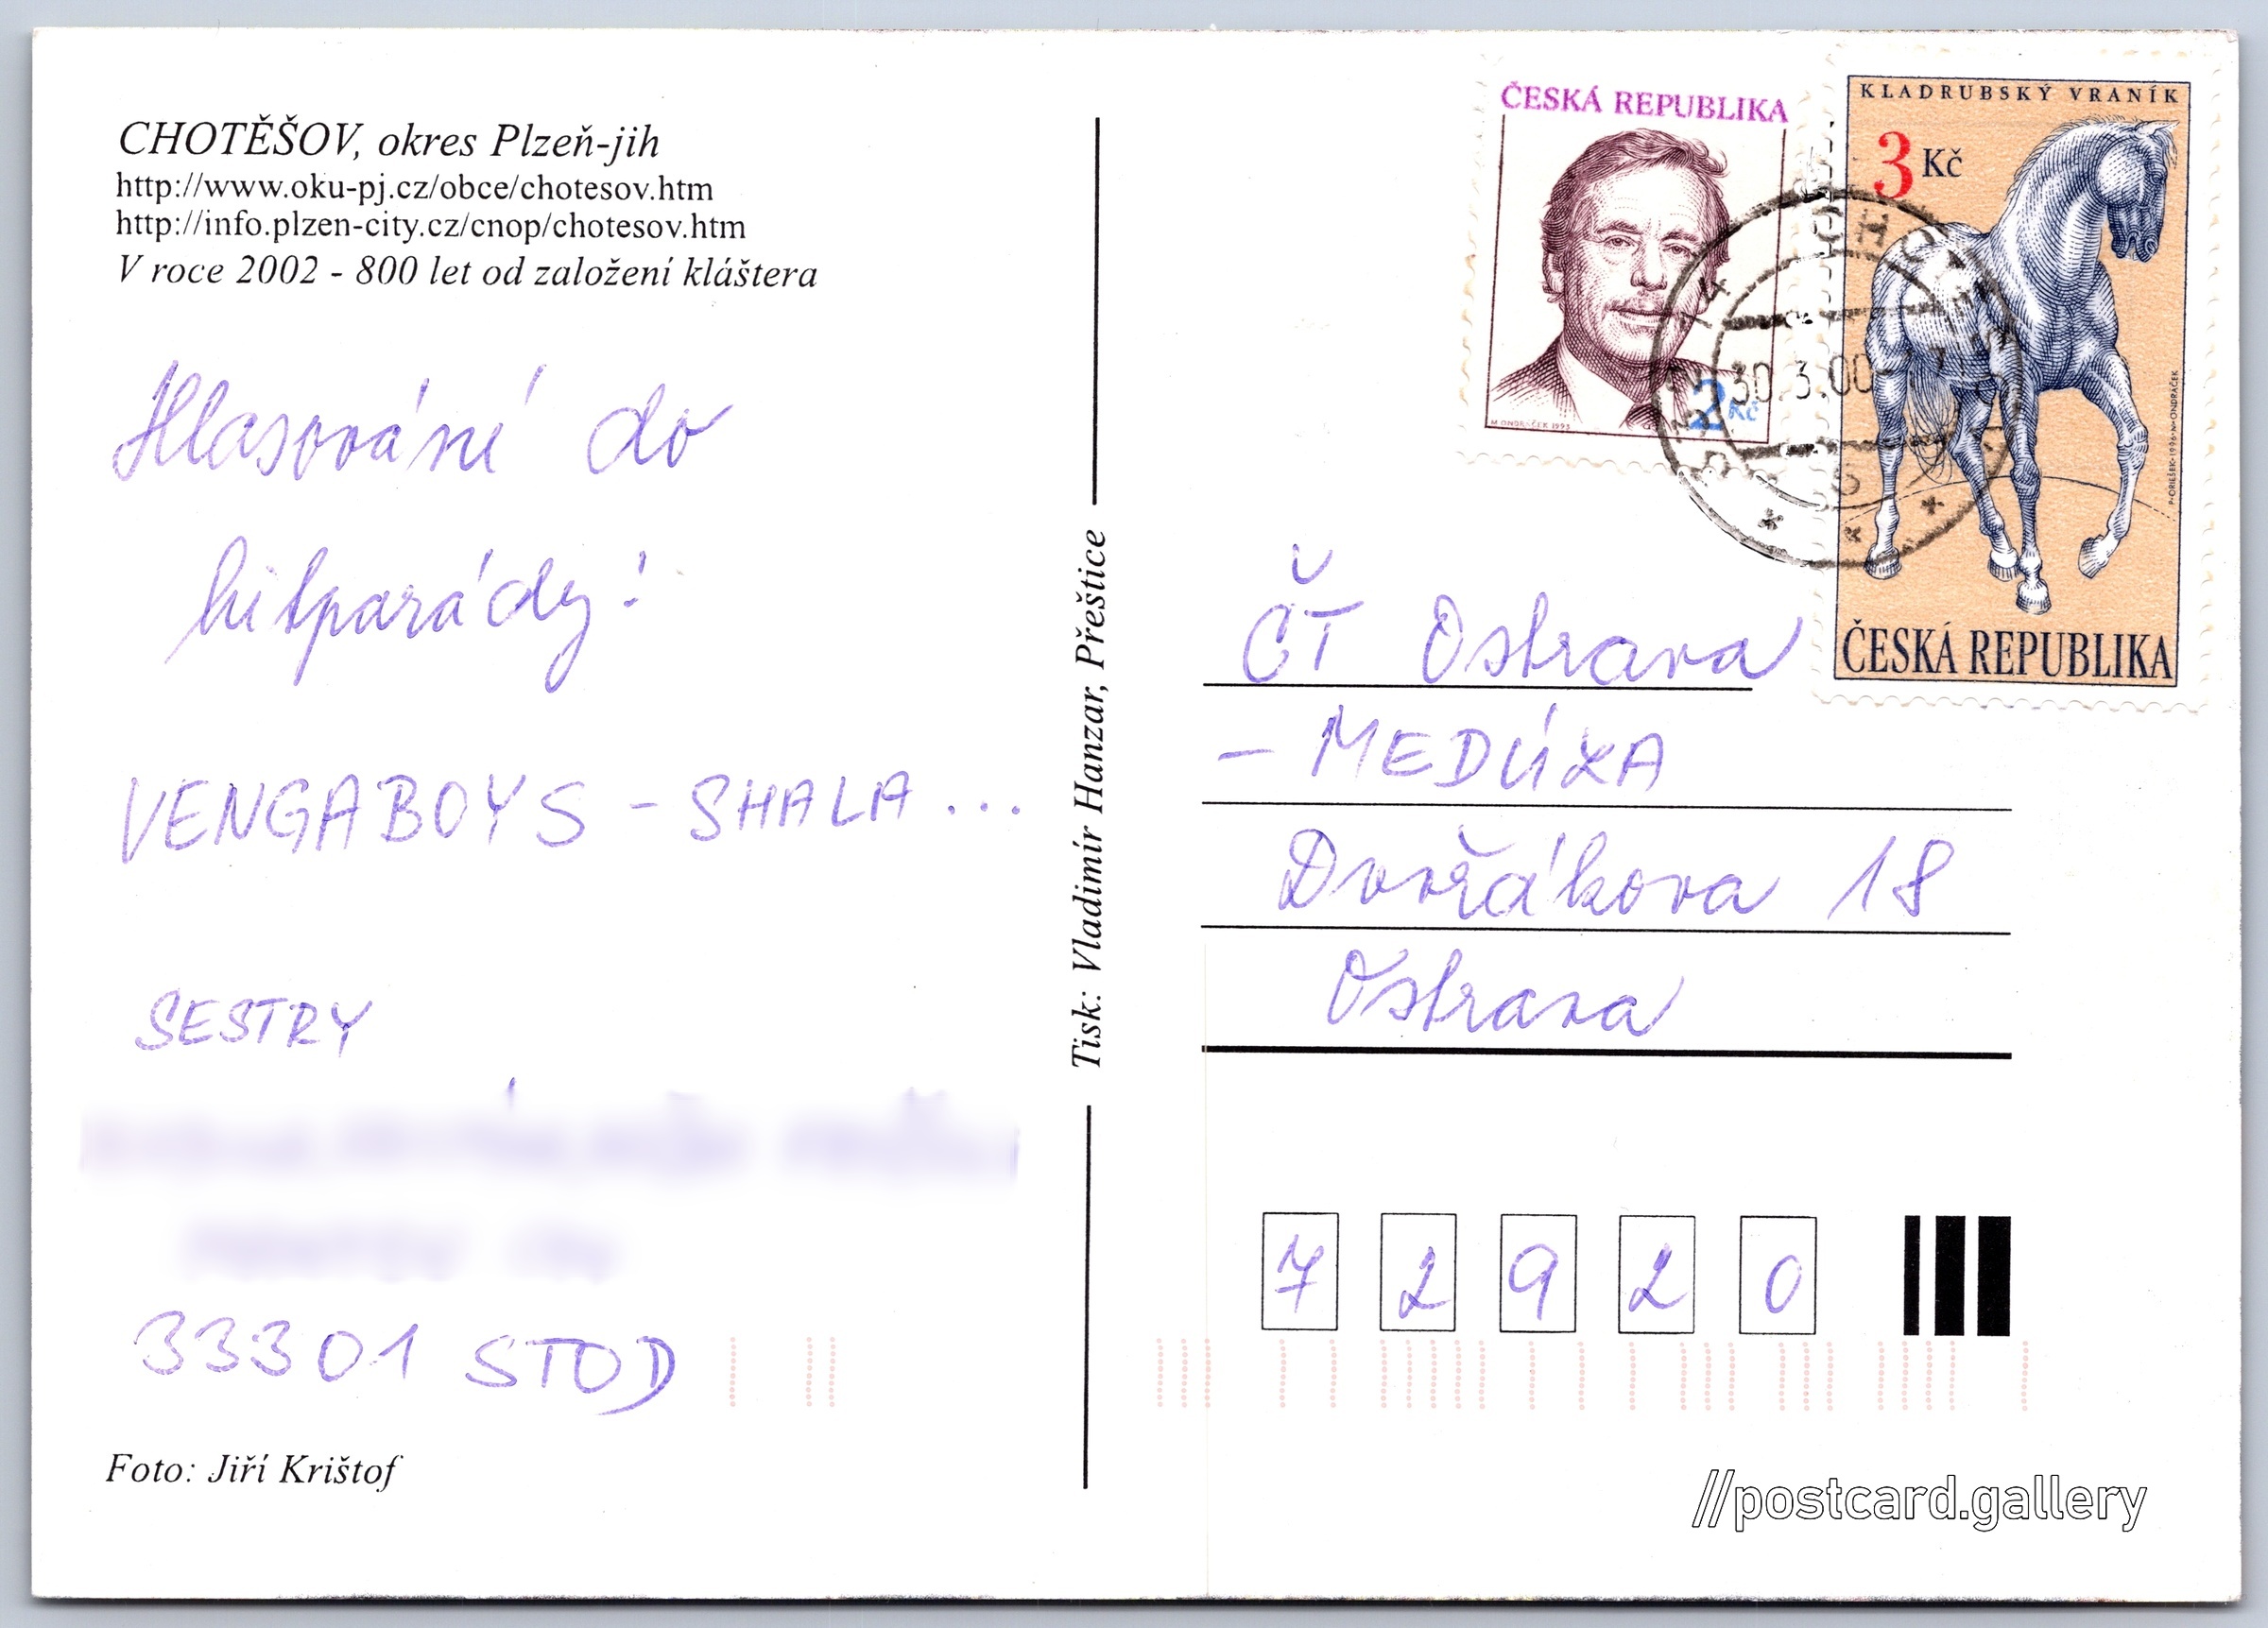 CHOTĚŠOV, okres Plzeň-jih
http://www.oku-pj.cz/obce/chotesov.htm
http://info.plzen-city.cz/cnop/chotesov.htm
V roce 2002 - 800 let od založení kláštera
Hlasování do
hitparády:
VENGABOYS - SHALA ...
SESTRY
33301 STOD
Foto: Jiří Krištof
Tisk: Vladimír Hanzar, Přeštice
ČESKÁ REPUBLIKA
2 Kč
M. ONDRÁČEK 1993
KLADRUBSKÝ VRANÍK
3 Kč
P. ORIEŠEK • 1996 • M. ONDRÁČEK
ČESKÁ REPUBLIKA
30.3.00
ČT Ostrava
- MEDÚZA
Dvořákova 18
Ostrava
7 2 9 2 0
//postcard.gallery